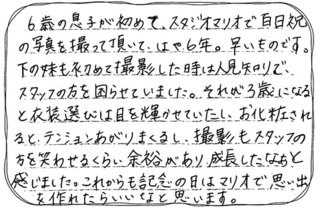 6歳の息子が初めて、スタジオマリオで百日祝
の写真を撮って頂いて、はや6年。早いものです。
下の妹も初めて撮影した時は人見知りで、
スタッフの方を困らせていました。それが3歳になる
と衣装選びは目を輝かせていたし、お化粧され
ると、テンションあがりまくるし、撮影もスタッフの
方を笑わせるくらい余裕があり、成長したなぁと
感じました。これからも記念の日はマリオで思い出
を作れたらいいなと思います。